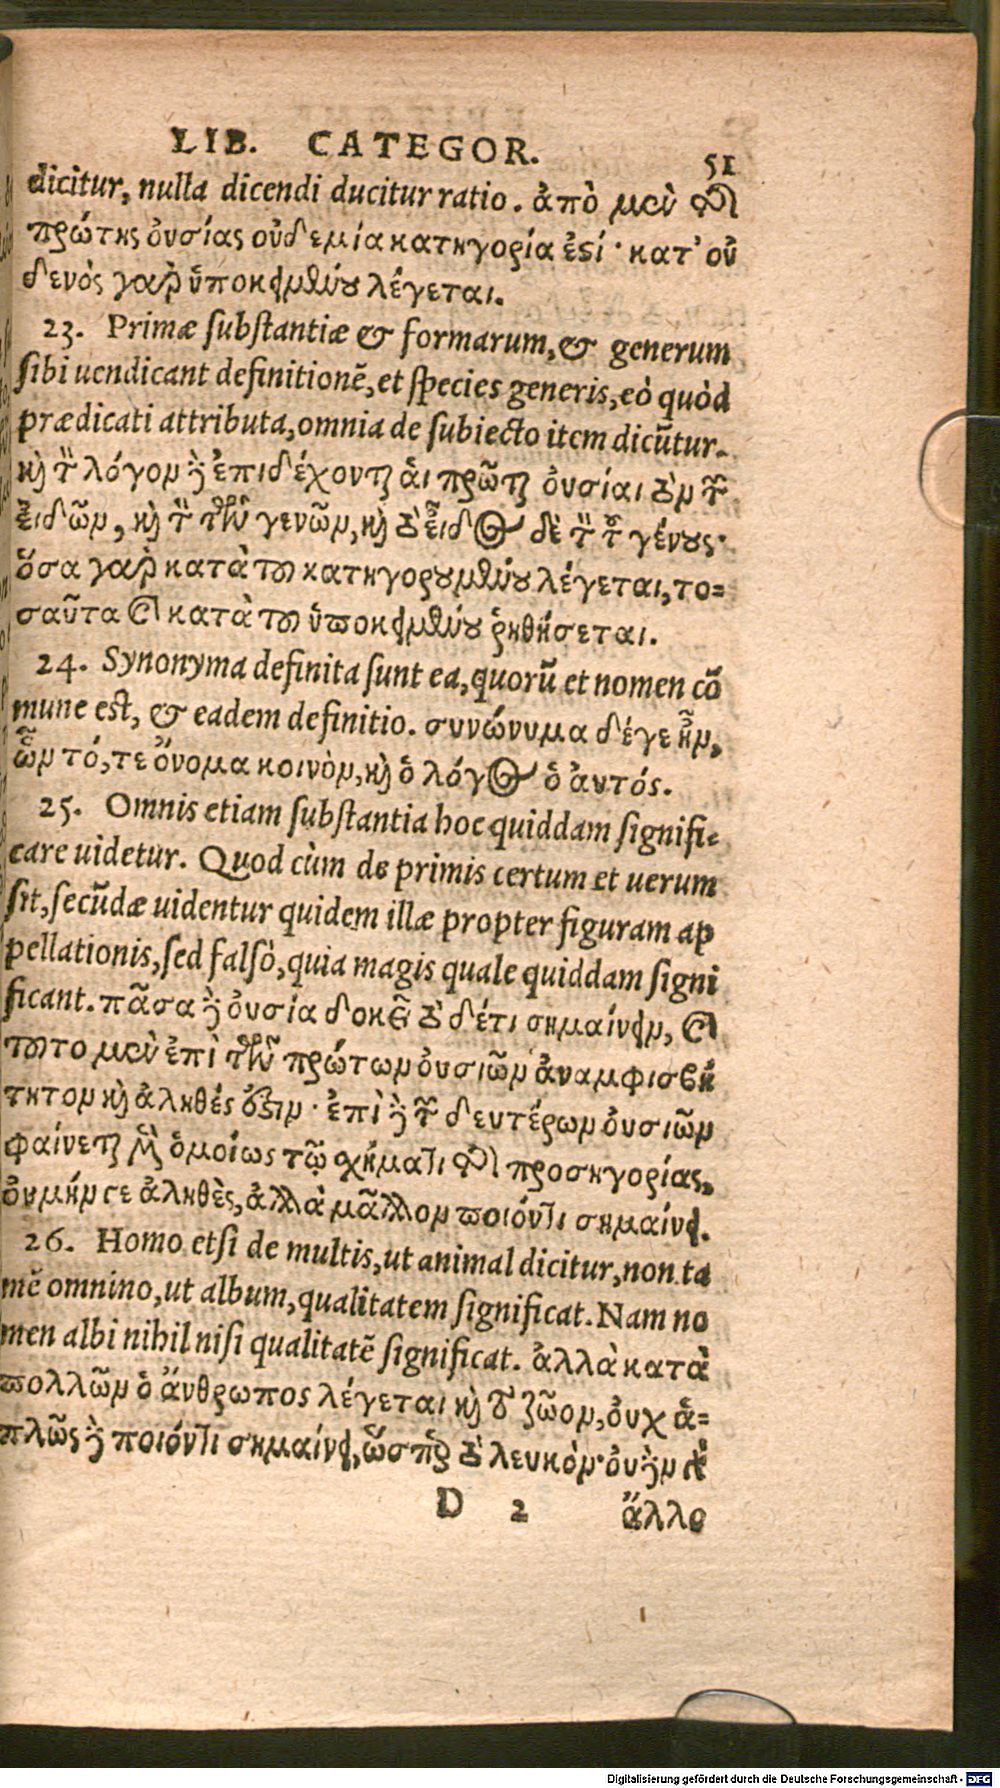 LIB. CATEGOR. 51
dicitur, nulla dicendi ducitur ratio. ἀπὸ μὲν τῆς
πρώτης ὀυσίας οὐδεμία κατηγορία ἐϛί· κατ' οὐ
δενὸς γαρ ὑποκειμένου λέγεται.
23. Primæ substantiæ & formarum, & generum
sibi uendicant definitionẽ, et species generis, eò quòd
prædicati attributa, omnia de subiecto item dicũtur.
κỳ τὸν λόγον δὲ ἐπιδέχονται ἁι πρῶται ὀυσίαι τὸν τῶν
ἐιδῶν, κỳ τὸν τῶν γενῶν, κỳ τὸ εἶδος δὲ τὸν τοῦ γένους·
ὅσα γαρ κατὰ του κατηγορουμένου λέγεται, το=
σαῦτα καὶ κατὰ του ὑποκειμένου ῥηθήσεται.
24. Synonyma definita sunt ea, quorũ et nomen cõ
mune est, & eadem definitio. συνώνυμα δέγε ἦν,
ὧν τό, τε ὄνομα κοινὸν, κỳ ὁ λόγος ὁ ἀυτός.
25. Omnis etiam substantia hoc quiddam signifi-
care uidetur. Quod cùm de primis certum et uerum
sit, secũdæ uidentur quidem illæ propter figuram ap
pellationis, sed falsò, quia magis quale quiddam signi
ficant. πᾶσα δὲ ὀυσία δοκεῖ τὸ δέτι σημαίνειν, καὶ
τουτο μὲν ἐπὶ τῶν πρώτων ὀυσιῶν ἀναμφισβή
τητον κỳ ἀληθές ἐστιν· ἐπὶ δὲ τῶν δευτέρων ὀυσιῶν
φαίνεται μὲν ὁμοίως τῷ σχήματι τῆς προσηγορίας,
ὀυμήν γε ἀληθὲς, ἀλλὰ μᾶλλον ποιόντι σημαίνει.
26. Homo etsi de multis, ut animal dicitur, non ta
mẽ omnino, ut album, qualitatem significat. Nam no
men albi nihil nisi qualitatẽ significat. ἀλλὰ κατὰ
πολλῶν ὁ ἄνθρωπος λέγεται κỳ τὸ ζῶον, ὀυχ ἁ=
πλῶς δὲ ποιόντι σημαίνει, ὥσπερ τὸ λευκὸν· ὀυδὲν γὰρ
D 2 ἄλλο
Digitalisierung gefördert durch die Deutsche Forschungsgemeinschaft - DFG